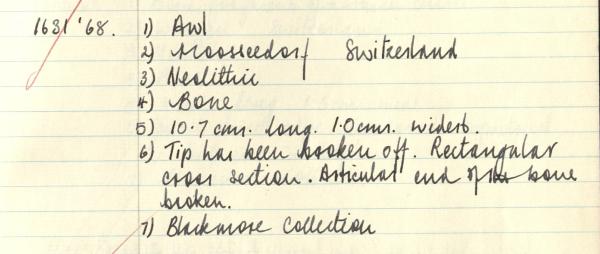 1631 '68. 1) Awl
2) Moosseedorf Switzerland
3) Neolithic
4) Bone
5) 10.7 cms. long. 1.0 cms. widest.
6) Tip has been broken off. Rectangular
cross section. Articular end of bone
broken.
7) Blackmore Collection